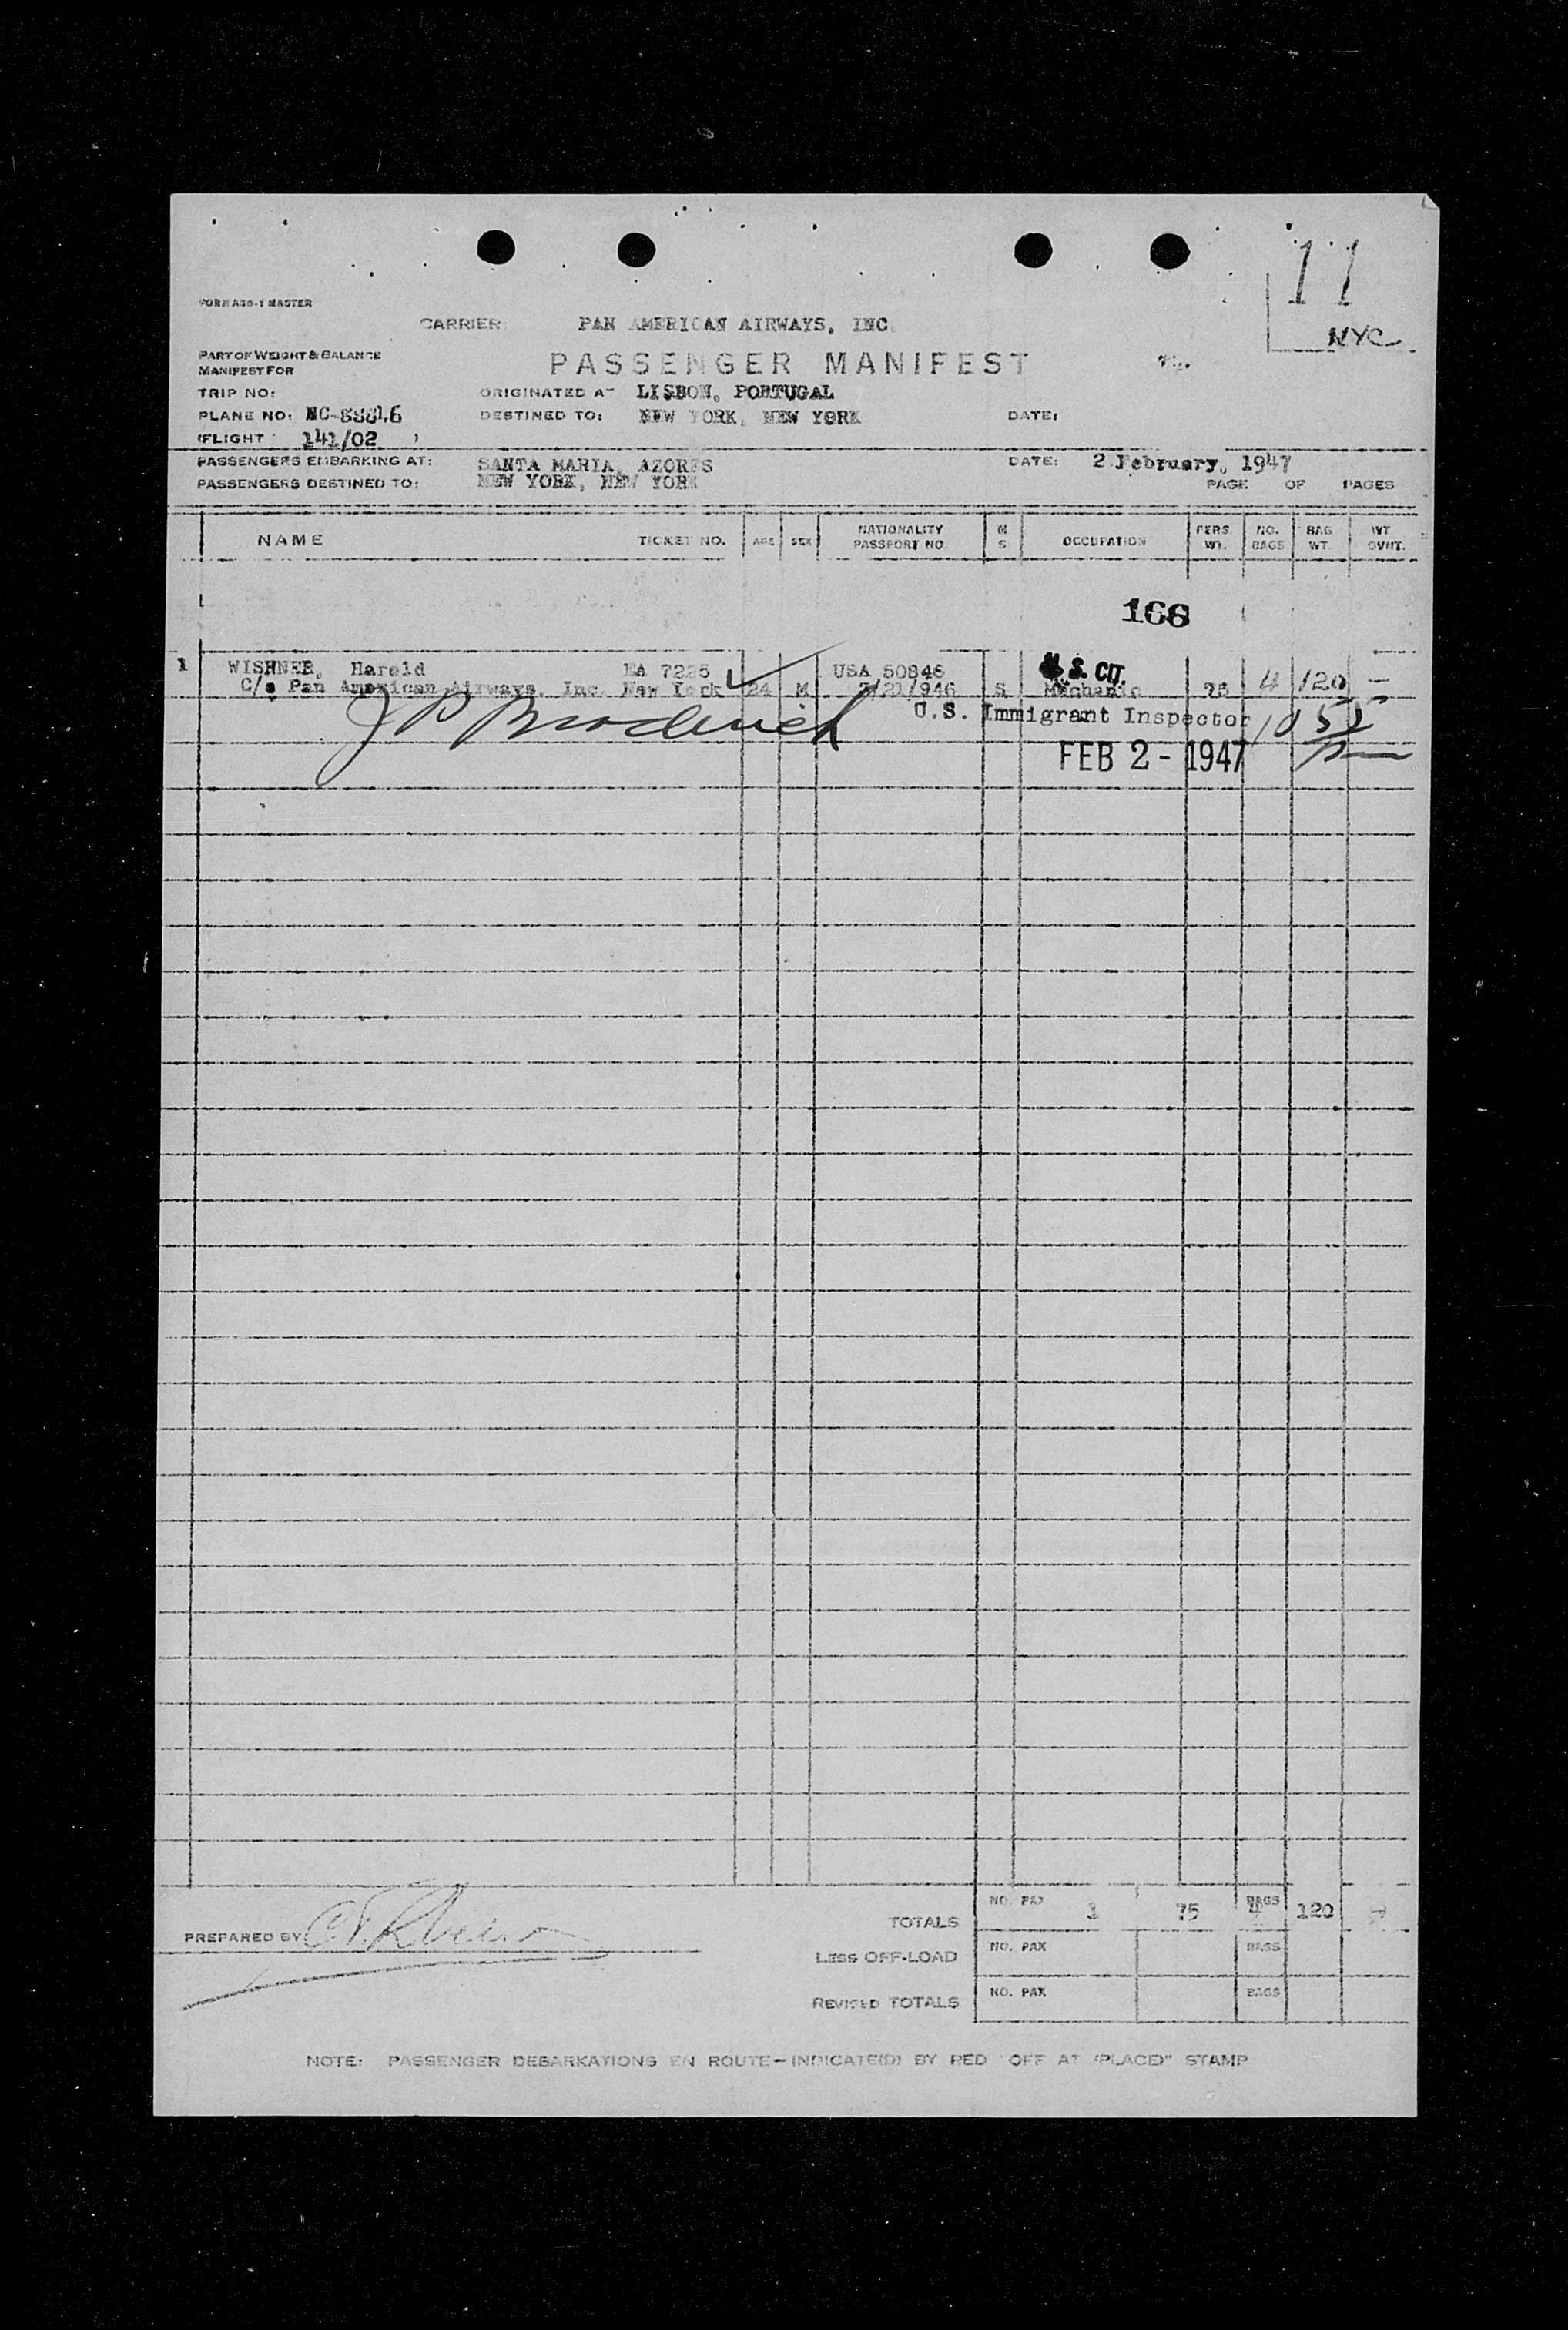 11
NYC
FORM A30-1 MASTER
CARRIER: PAN AMERICAN AIRWAYS, INC.
PART OF WEIGHT & BALANCE
MANIFEST FOR
PASSENGER MANIFEST
TRIP NO:
ORIGINATED AT LISBON, PORTUGAL
PLANE NO:
DESTINED TO: NEW YORK, NEW YORK
DATE:
(FLIGHT 141/02 )
PASSENGERS EMBARKING AT: SANTA MARIA, AZORES
DATE: 2 February, 1947
PASSENGERS DESTINED TO: NEW YORK, NEW YORK
PAGE OF PAGES
NAME TICKET NO. AGE SEX NATIONALITY PASSPORT NO. M S OCCUPATION PERS. WT. NO. BAGS BAG WT. WT OVHT.
168
1 WISHNER, Harold EA 7225 USA 50846 U.S. CIT.
C/o Pan American Airways, Inc. New York 24 M /21/946 S Mechanic 75 4 120 —
J P Broderick U.S. Immigrant Inspector
FEB 2 - 1947
PREPARED BY
TOTALS NO. PAX 1 75 BAGS 4 120
LESS OFF-LOAD NO. PAX BAGS
REVISED TOTALS NO. PAX BAGS
NOTE: PASSENGER DEBARKATIONS EN ROUTE—INDICATE(D) BY RED "OFF AT (PLACE)" STAMP